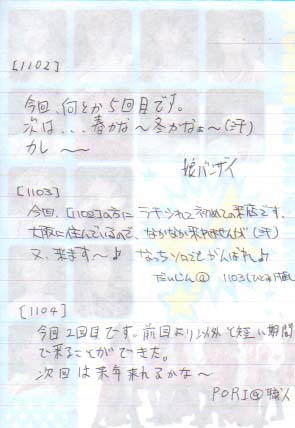 [1102]
今回、何とか5回目です。
次は...春かな〜冬かなぁ〜(汗)
カレ 〜〜
娘バンザイ
[1103]
今回、[1102]の方に ラチられて初めての来店です。
大阪に住んでいるので、なかなか来れませんが(汗)
又、来ます〜♪ なっちソロでもがんばれよ♪
だいじん@ 1103(
[1104]
今回2回目です。前回より以外と短い期間
で来ることができた。
次回は来年来れるかな〜
PORI@職人